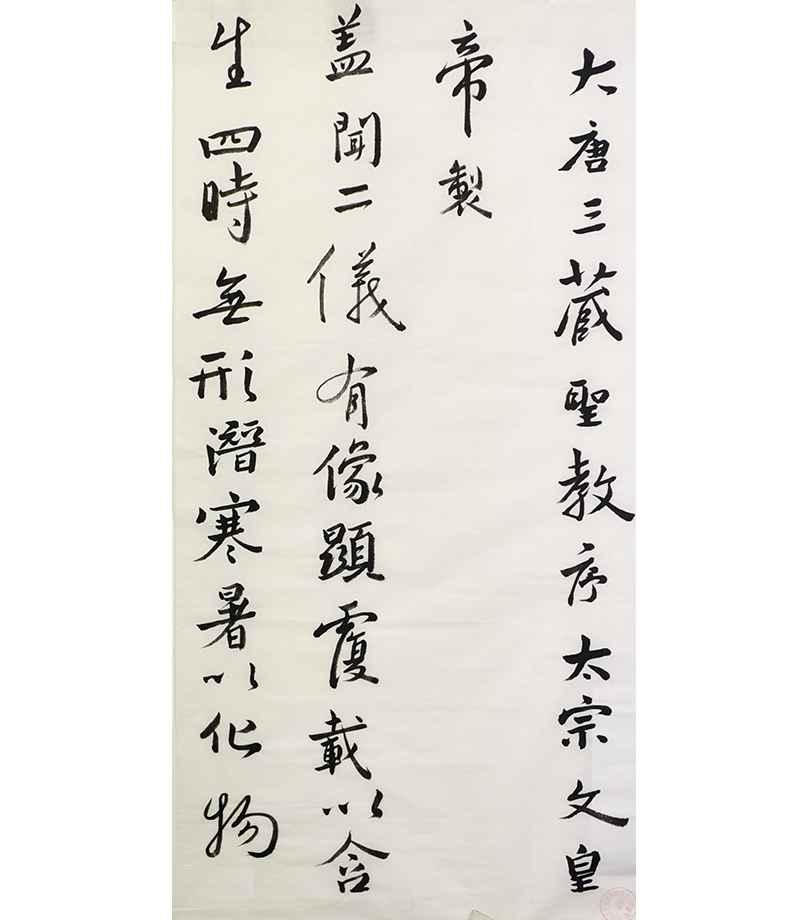 大唐三藏聖教序太宗文皇
帝製
盖聞二儀有像顯覆載以含
生四時無形潛寒暑以化物